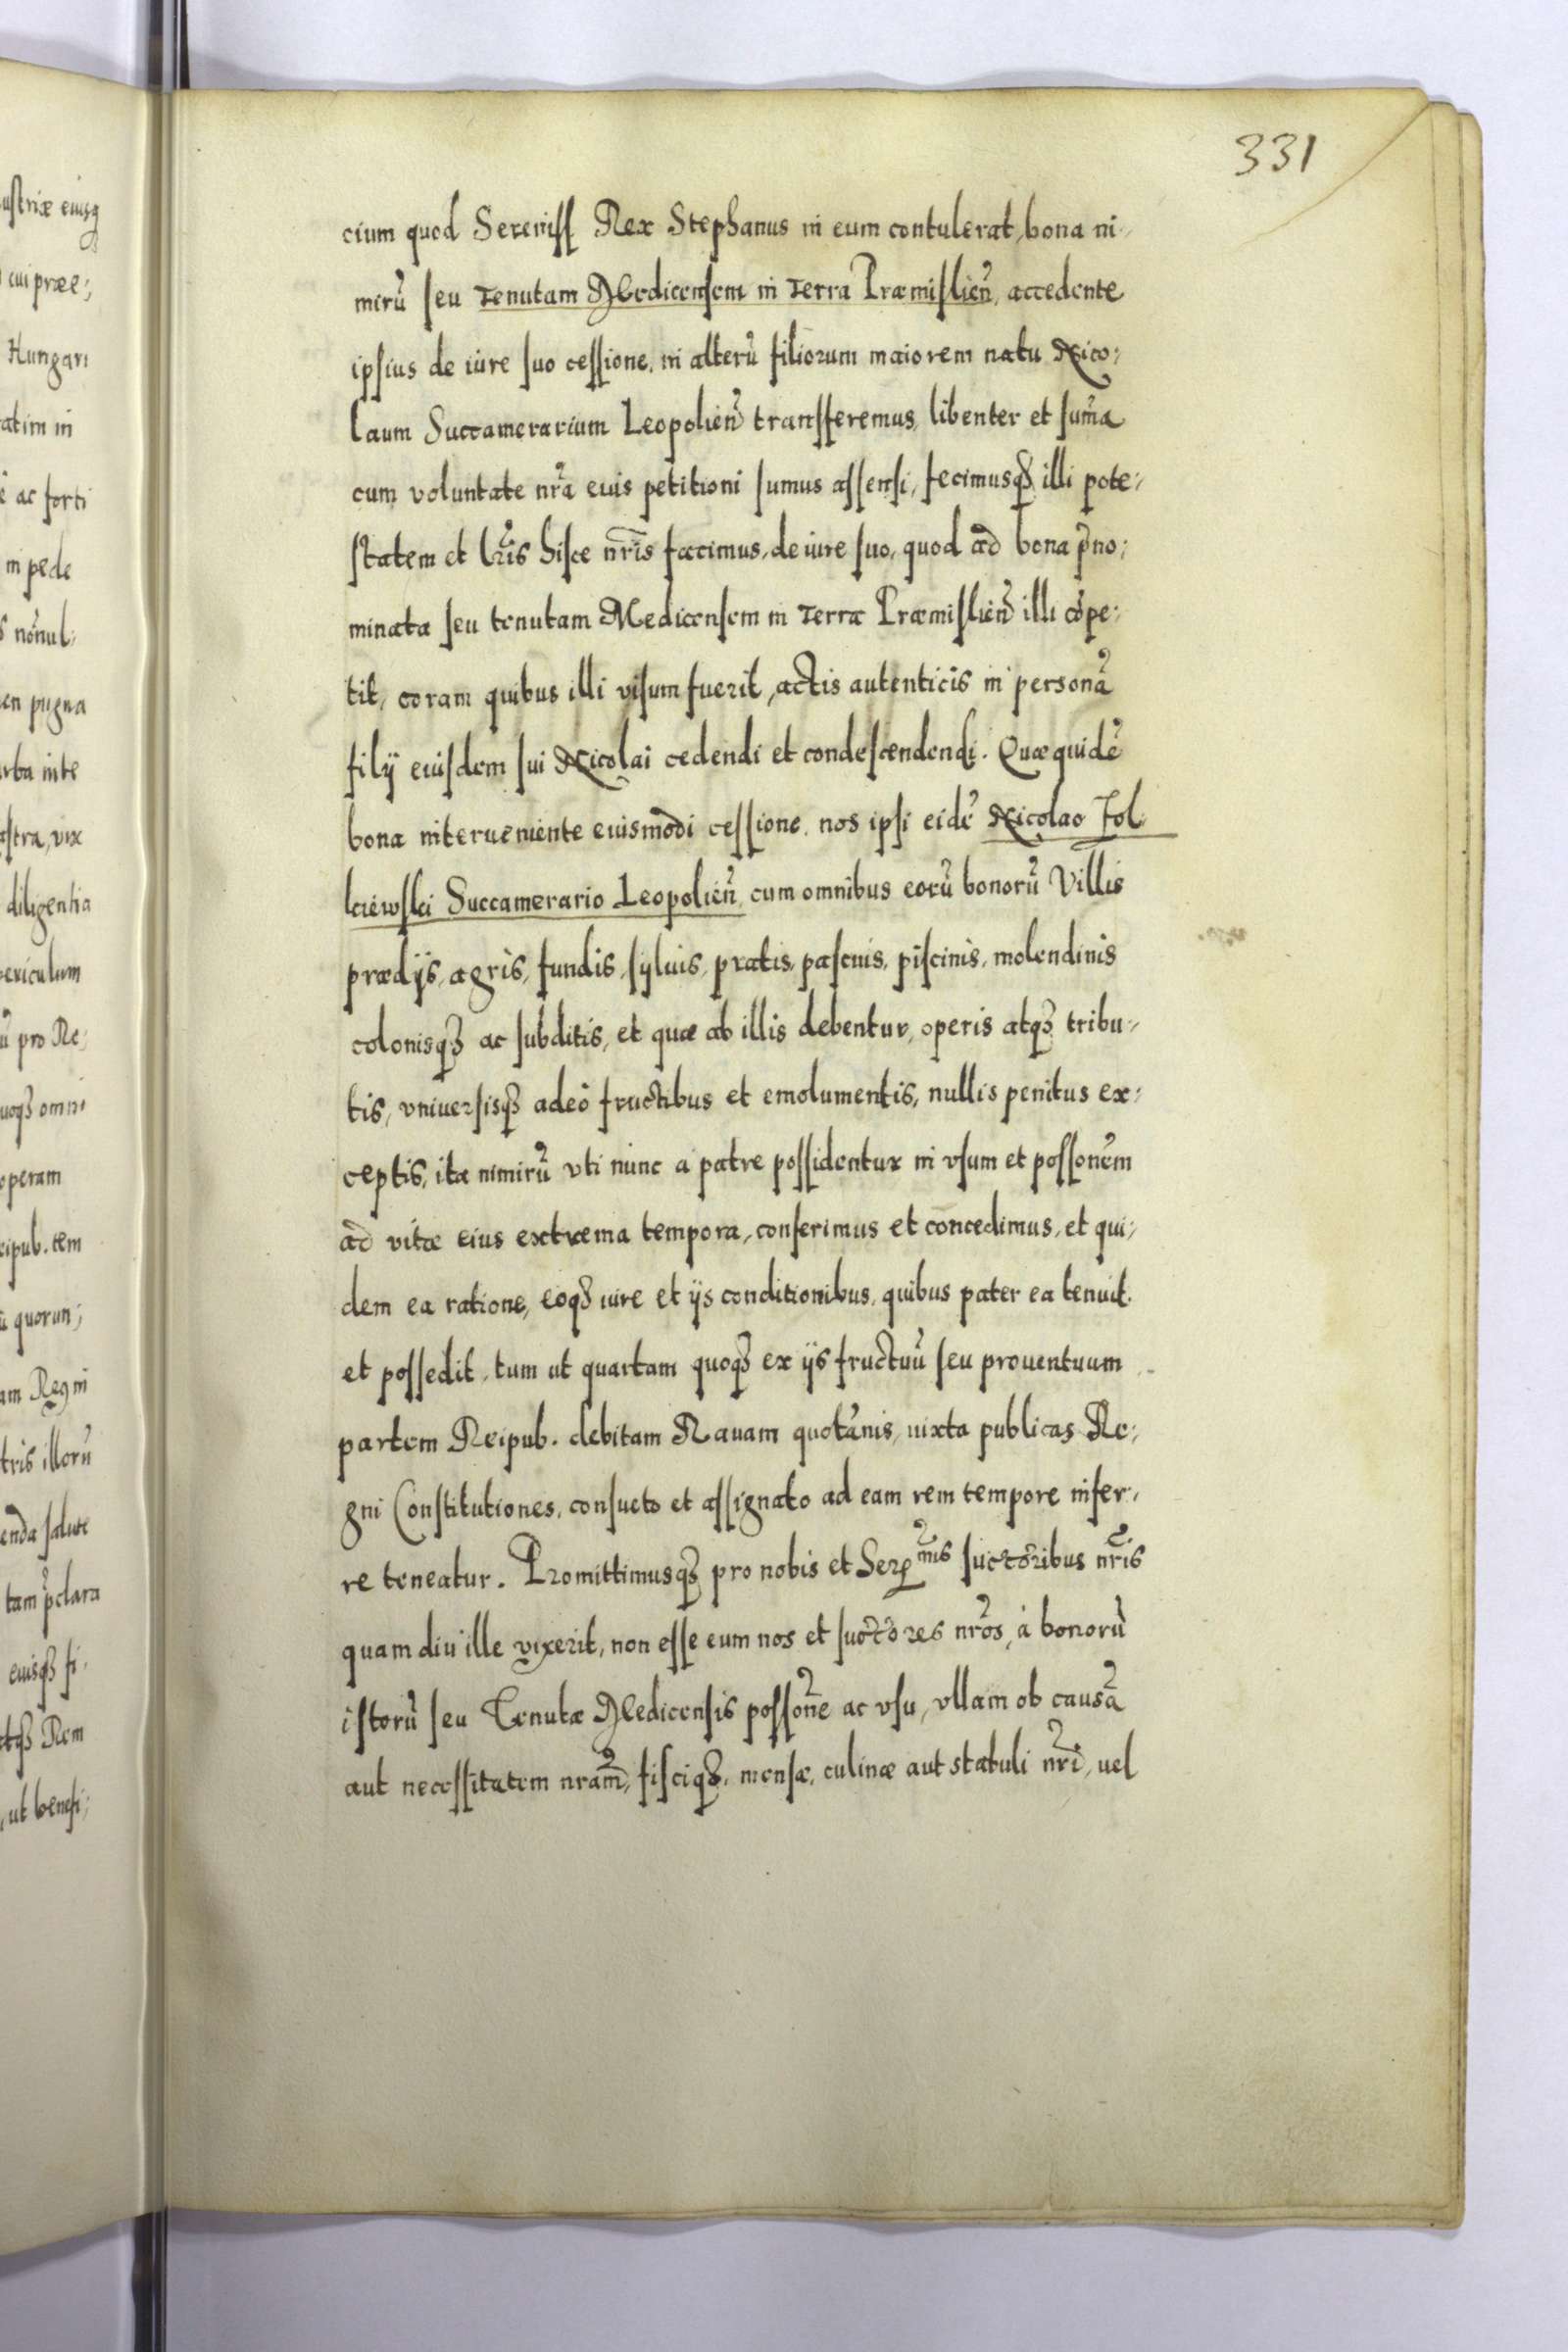 331
cium quod Sereniss Rex Stephanus in eum contulerat, bona ni-
mirũ seu Tenutam Medicensem in Terra Præmislieñ, accedente
ipsius de iure suo cessione, in alterũ filiorum maiorem natu Nico-
laum Succamerarium Leopolieñ transferemus, libenter et sum̃a
cum voluntate nr̃a euis petitioni sumus assensi, fecimusq illi pote-
statem et lr̃is hisce nr̃is facimus, de iure suo, quod ad bona p̃no-
minata seu tenutam Medicensem in Terra Præmislieñ illi cõpe-
tit, coram quibus illi visum fuerit, actis autenticis in personã
filij eiusdem sui Nicolai cedendi et condescendendi. Quæquidẽ
bona interueniente eiusmodi cessione, nos ipsi eidẽ Nicolao Fol
kiewski Succamerario Leopolieñ, cum omnibus eorũ bonorũ Villis
prædijs, agris, fundis, syluis, pratis, pascuis, piscinis, molendinis
colonisq ac subditis, et quæ ab illis debentur, operis atq tribu-
tis, vniuersisq adeò fructibus et emolumentis, nullis penitus ex-
ceptis, ita nimirũ vti nunc a patre possidentur in vsum et possonẽm
ad vitæ eius extrema tempora, conferimus et concedimus, et qui-
dem ea ratione, eoq iure et ijs conditionibus, quibus pater ea tenuit
et possedit, tum ut quartam quoq ex ijs fructuũ seu prouentuum
partem Reipub. debitam Rauam quotãnis, iuxta publicas Re-
gni Constitutiones, consueto et assignato ad eam rem tempore infer-
re teneatur. Promittimusq pro nobis et Ser mis suctoribus nr̃is
quam diu ille vixerit, non esse eum nos et suctores nr̃os, à bonorũ
istorũ seu Tenutæ Medicensis possonẽ ac vsu, vllam ob causã
aut necessitatem nram̃, fisciq, mensæ, culinæ aut statuli nr̃i, uel